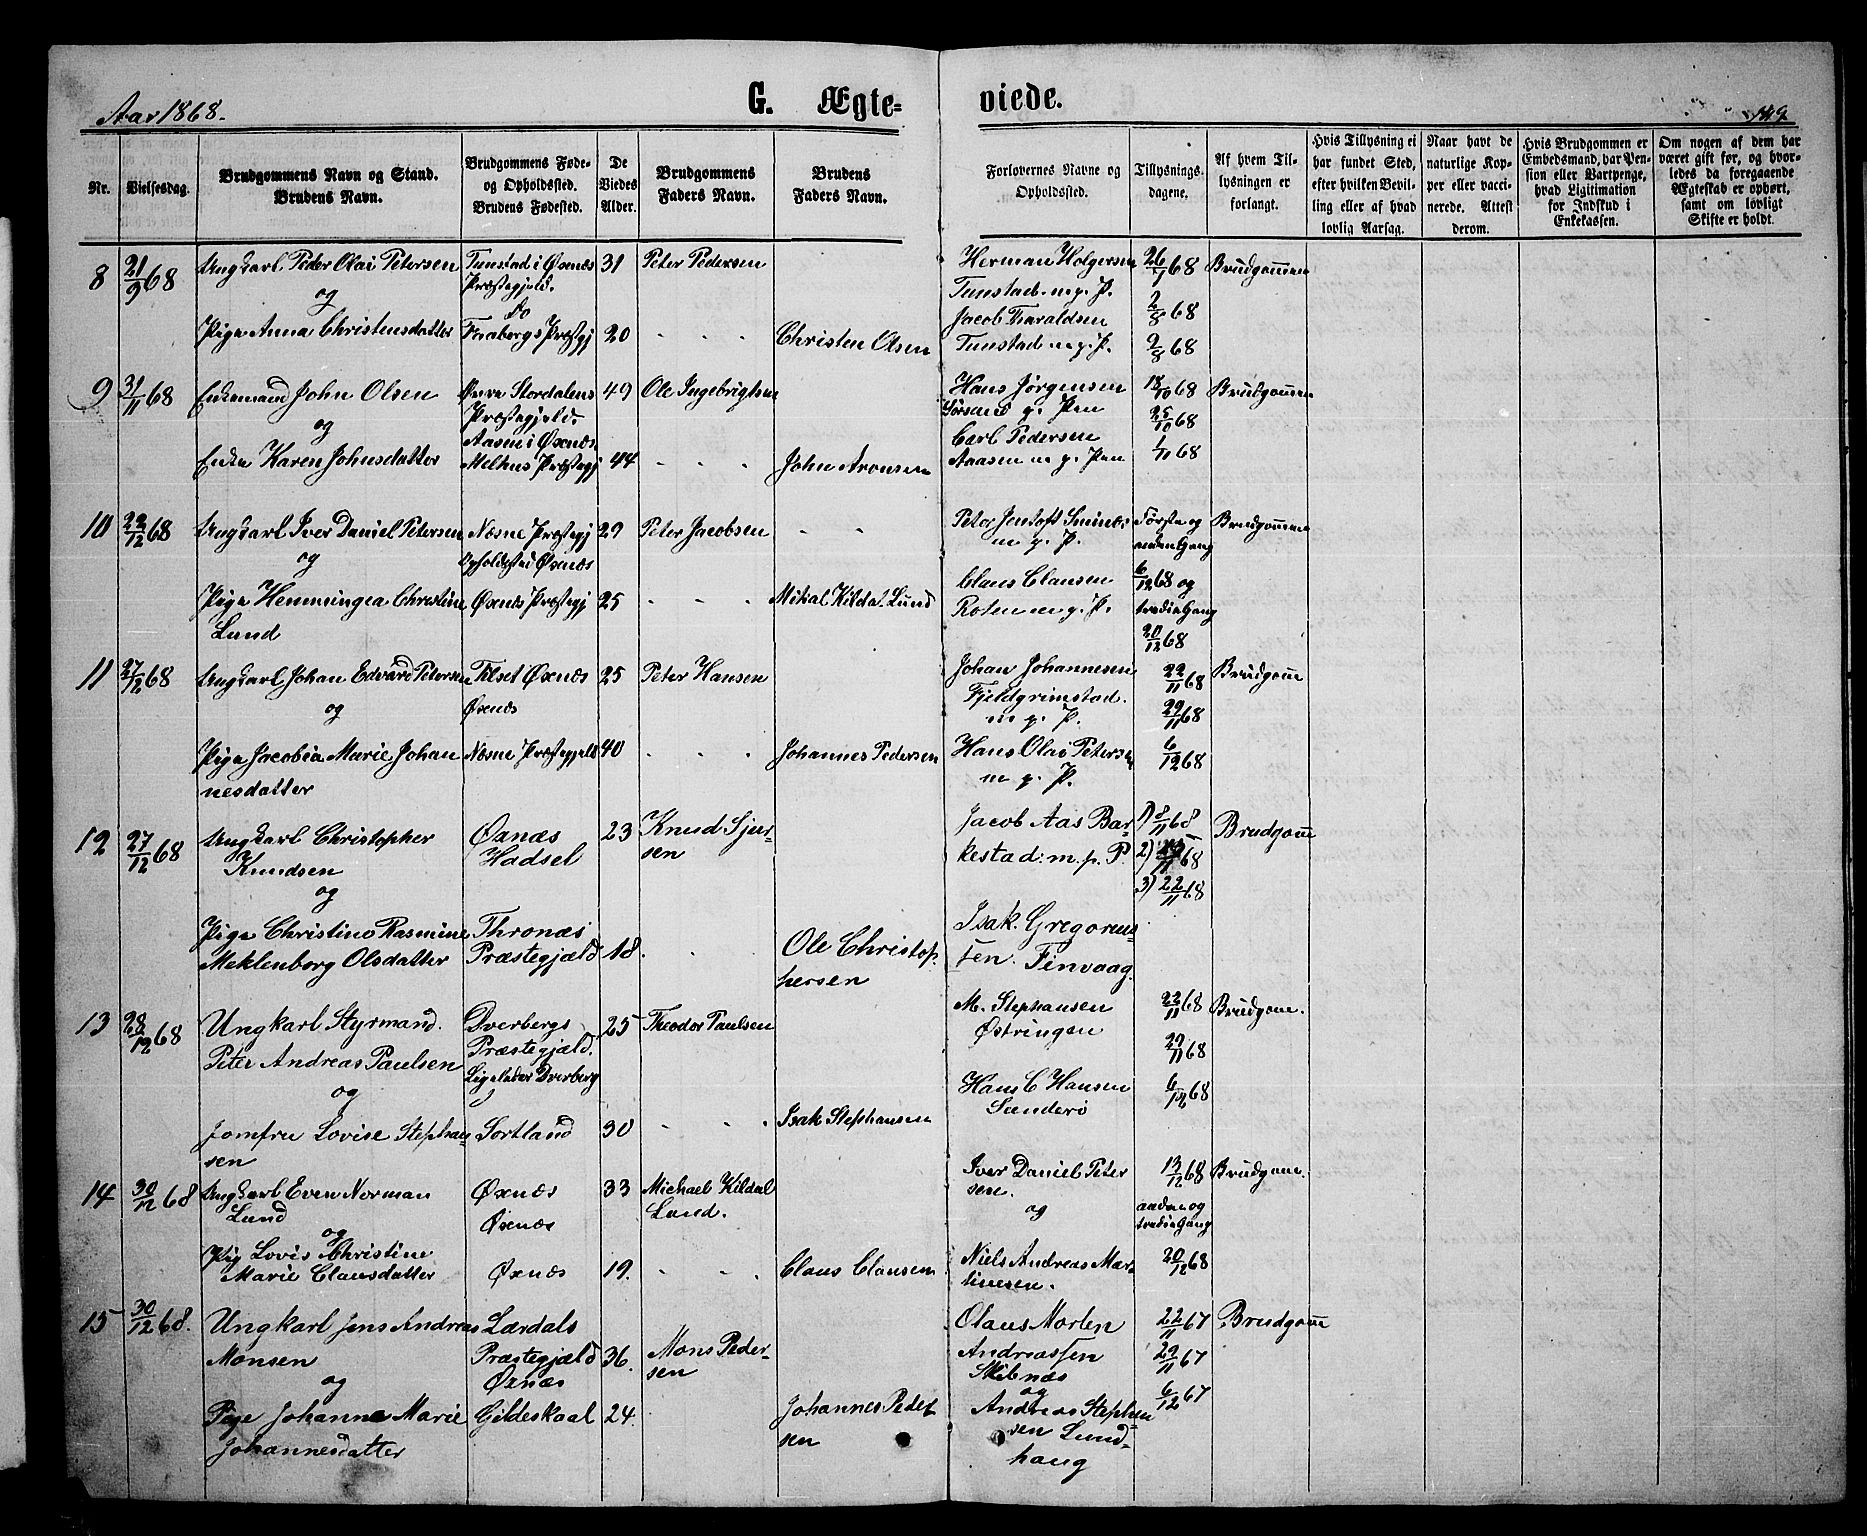 Aar 1868.
G. Ægte=
viede.
149
Nr.
Vielsesdag.
Brudgommens Navn og Stand.
Brudens Navn.
Brudgommens Føde-
og Opholdsted.
Brudens Fødested.
De
Viedes
Alder.
Brudgommens
Faders Navn.
Brudens
Faders Navn.
Forlovernes Navne og
Opholdsted.
Tillysnings-
dagene.
Af hvem Til-
lysningen er
forlangt.
Hvis Tillysning ei
har fundet Sted,
efter hvilken Bevil-
ling eller af hvad
lovlig Aarsag.
Naar havt de
naturlige Kop-
per eller vacci-
nerede. Attest
derom.
Hvis Brudgommen er
Embedsmand, har Pen-
sion eller Vartpenge,
hvad Ligitimation
for Indskud i
Enkekassen.
Om nogen af dem har
været gift før, og hvor-
ledes da foregaaende
Ægteskab er ophørt,
samt om lovligt
Skifte er holdt.
8 21/9 68 Ungkarl Peder Olai Petersen
og
Pige Anna Christensdatter
Tunstad i Øxnæs
Præstegjeld.
do
Præstegj
31
20
Peter Pedersen
Christen Olsen
Herman Holgersen
Tunstad m. p. P.
Jacob Haraldsen
Tunstad m. p. P.
26/7 68
2/8 68
9/8 68
Brudgommen
9 31/11 68 Enkemand John Olsen
og
Enke Karen Johnsdatter
Stordalens
Præstegjeld.
Aasen i Øxnæs
Melhus Præstegj
49
44
Ole Ingebrigtsen
John Aronsen
Hans Jørgensen
p. Pen
Carl Pedersen
Aaasen m. p. Pen
18/10 68
25/10 68
1/11 68
Brudgommen
10 22/12 68 Ungkarl Iver Daniel Petersen
og
Pige Hemmingea Christine
Lund
Næsne Præstegj
Opholdsted Øxnæs
Øxnæs Præstegj
29
25
Peter Jacobsen
Mikal Kildal Lund
Peter Jentoft Smines
m. p. P.
Claus Clausen
Roten m. p. P.
Første og
anden Gang
6/12 68 og
tredie Gang
20/12 68
Brudgommen
11 27/12 68 Ungkarl Johan Edvard Petersen
og
Pige Jacobia Marie Johan
nesdatter
Tilset Øxnæs
Øxnæs
Næsne Præstegjeld
25
40
Peter Hansen
Johannes Pedersen
Johan Johannesen
Fjeldgrimstad.
m. p. P.
Hans Olai Petersen
m. p. P.
22/11 68
29/11 68
6/12 68
Brudgom
12 27/12 68 Ungkarl Christopher
Knudsen
og
Pige Christine Rasmine
Meklenborg Olsdatter
Øxnæs
Hadsel
Thronæs
Præstegjæld
23
18.
Knud Sjur-
sen
Ole Christop
hersen
Jacob Aas Bar-
kestad: m. p. P.
Isak Gregorius-
sen. Finvaag.
1) 8/11 68
2) 15/11 68
3) 22/11 68
Brudgom
13 28/12 68 Ungkarl Styrmand.
Peter Andreas Paulsen
og
Jomfru Lovise Stephan-
sen
Dverbergs
Præstegjæld.
Ligeledes Dverberg
Sortland
25
30
Theodor Paulsen
Isak Stephansen
M. Stephansen
Østringen
Hans C Hansen
Sanderø
22/11 68
29/11 68
6/12 68
Brudgom.
14 30/12 68 Ungkarl Even Norman
Lund
og
Pig Lovis Christine
Marie Clausdatter
Øxnæs
Øxnæs
Øxnæs
33
19.
Michael Kildal
Lund.
Claus Clausen
Iver Daniel Peter
sen.
og
Niels Andreas Mar-
tinesen.
13/12 68
anden og
tredie Gang
20/12 68
Brudgom.
15 30/12 68. Ungkarl Jens Andreas
Monsen
og
Pige Johanne Marie
Johannesdatter
Lærdals
Præstegjæld
Øxnæs
Gildeskaal
36.
24.
Mons Peder-
sen
Johannes Peder
sen
Olaus Morten
Andreassen
Skibnæs
og
Andreas Stephen-
sen Lund-
haug
22/11 67
29/11 67
6/12 67
Brudgom